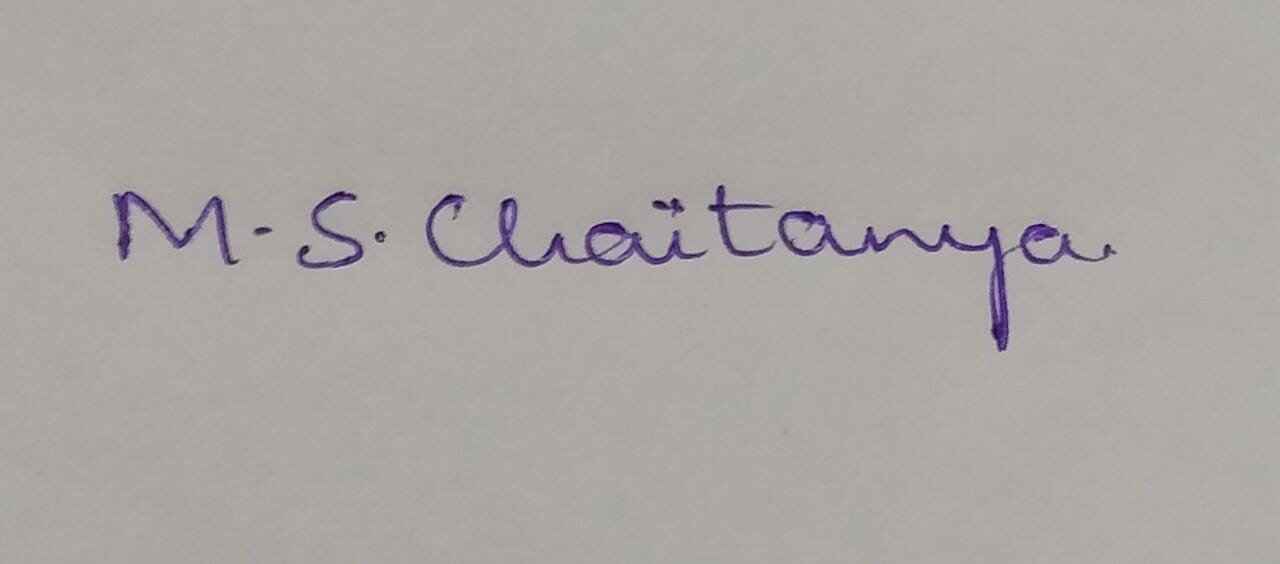 M. S. Chaitanya.